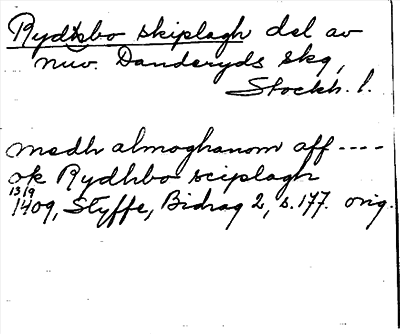 Rydbo skiplagh del av
nuv. Danderyds skg,
Stockh. l.
medh almoghanom aff ----
ok Rydhbo sciplagh
13/9
1409, Styffe, Bidrag 2, s. 177. orig.